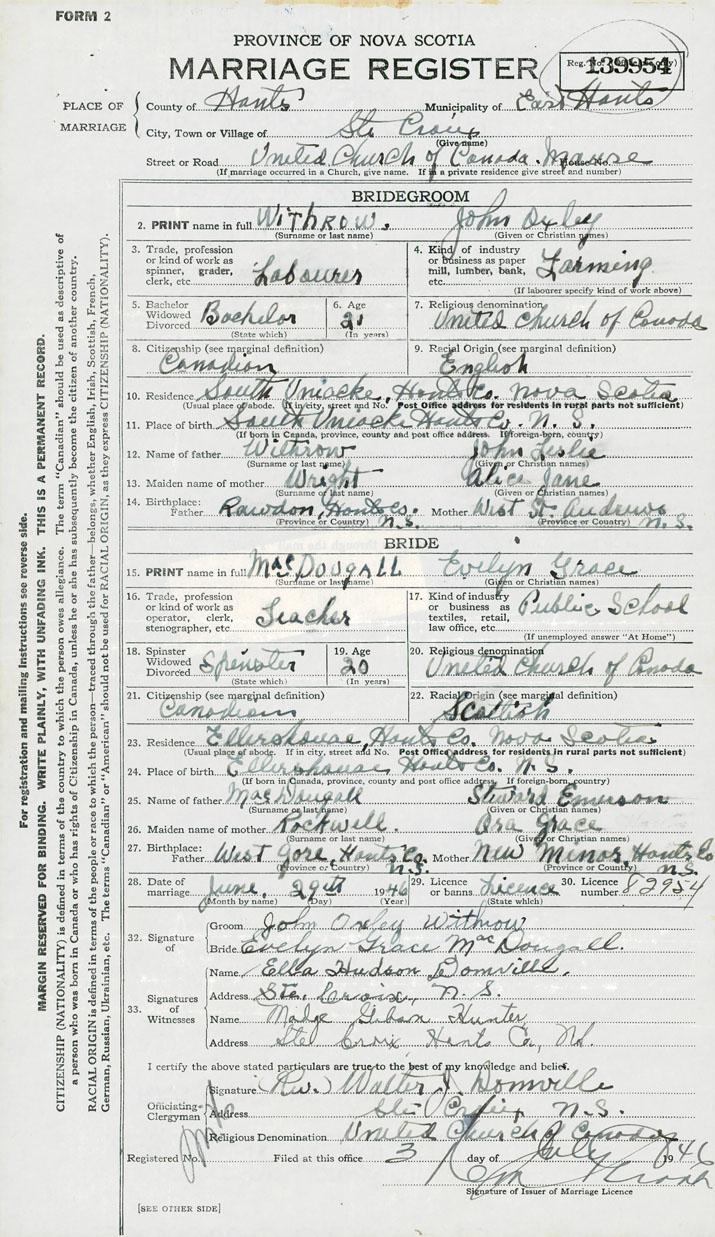 FORM 2
PROVINCE OF NOVA SCOTIA
MARRIAGE REGISTER
Reg. No. (Office use only)
139954
PLACE OF MARRIAGE
County of Hants Municipality of East Hants
City, Town or Village of Ste Croix
(Give name)
Street or Road United Church of Canada. Manse House No.
(If marriage occurred in a Church, give name. If in a private residence give street and number)
BRIDEGROOM
2. PRINT name in full WITHROW, John Oxley
(Surname or last name) (Given or Christian names)
3. Trade, profession or kind of work as spinner, grader, clerk, etc. Labourer
4. Kind of industry or business as paper mill, lumber, bank, etc. Farming
(If labourer specify kind of work above)
5. Bachelor Widowed Divorced Bachelor
(State which)
6. Age 21
(In years)
7. Religious denomination United Church of Canada
8. Citizenship (see marginal definition) Canadian
9. Racial Origin (see marginal definition) English
10. Residence South Uniacke, Hants Co. Nova Scotia
(Usual place of abode. If in city, street and No. Post Office address for residents in rural parts not sufficient)
11. Place of birth South Uniacke Hants Co. N. S.
(If born in Canada, province, county and post office address. If foreign-born, country)
12. Name of father Withrow John Leslie
(Surname or last name) (Given or Christian names)
13. Maiden name of mother Wright Alice Jane
(Surname or last name) (Given or Christian names)
14. Birthplace: Father Rawdon, Hants Co. N.S. Mother West St. Andrews N.S.
(Province or Country) (Province or Country)
BRIDE
15. PRINT name in full MacDougall Evelyn Grace
(Surname or last name) (Given or Christian names)
16. Trade, profession or kind of work as operator, clerk, stenographer, etc. Teacher
17. Kind of industry or business as textiles, retail, law office, etc. Public School
(If unemployed answer "At Home")
18. Spinster Widowed Divorced Spinster
(State which)
19. Age 20
(In years)
20. Religious denomination United Church of Canada
21. Citizenship (see marginal definition) Canadian
22. Racial Origin (see marginal definition) Scottish
23. Residence Ellershouse, Hants Co. Nova Scotia
(Usual place of abode. If in city, street and No. Post Office address for residents in rural parts not sufficient)
24. Place of birth Ellershouse Hants Co. N. S.
(If born in Canada, province, county and post office address If foreign-born, country)
25. Name of father MacDougall Steward Emerson
(Surname or last name) (Given or Christian names)
26. Maiden name of mother Rockwell. Ora Grace
(Surname or last name) (Given or Christian names)
27. Birthplace: Father West Gore, Hants Co. N.S. Mother New Minas, Hants Co N.S.
(Province or Country) (Province or Country)
28. Date of marriage June, 29th 1946
(Month by name) (Day) (Year)
29. Licence or banns Licence
(State which)
30. Licence number 82954
32. Signature of
Groom John Oxley Withrow
Bride Evelyn Grace MacDougall.
33. Signatures of Witnesses
Name Hudson Domville.
Address Ste. Croix, N. S.
Name Madge Hunter
Address Ste Croix Hants Co,
I certify the above stated particulars are true to the best of my knowledge and belief.
Officiating Clergyman
Signature (Rev.) Walter J. Domville
Address Ste. Croix, N. S.
Religious Denomination United Church of Canada
Registered No. Filed at this office 3 day of July 1946
Signature of Issuer of Marriage Licence
[SEE OTHER SIDE]
For registration and mailing instructions see reverse side.
MARGIN RESERVED FOR BINDING. WRITE PLAINLY, WITH UNFADING INK. THIS IS A PERMANENT RECORD.
CITIZENSHIP (NATIONALITY) is defined in terms of the country to which the person owes allegiance. The term "Canadian" should be used as descriptive of
a person who was born in Canada or who has rights of Citizenship in Canada, unless he or she has subsequently become the citizen of another country.
RACIAL ORIGIN is defined in terms of the people or race to which the person—traced through the father—belongs, whether English, Irish, Scottish, French,
German, Russian, Ukrainian, etc. The terms "Canadian" or "American" should not be used for RACIAL ORIGIN, as they express CITIZENSHIP (NATIONALITY).